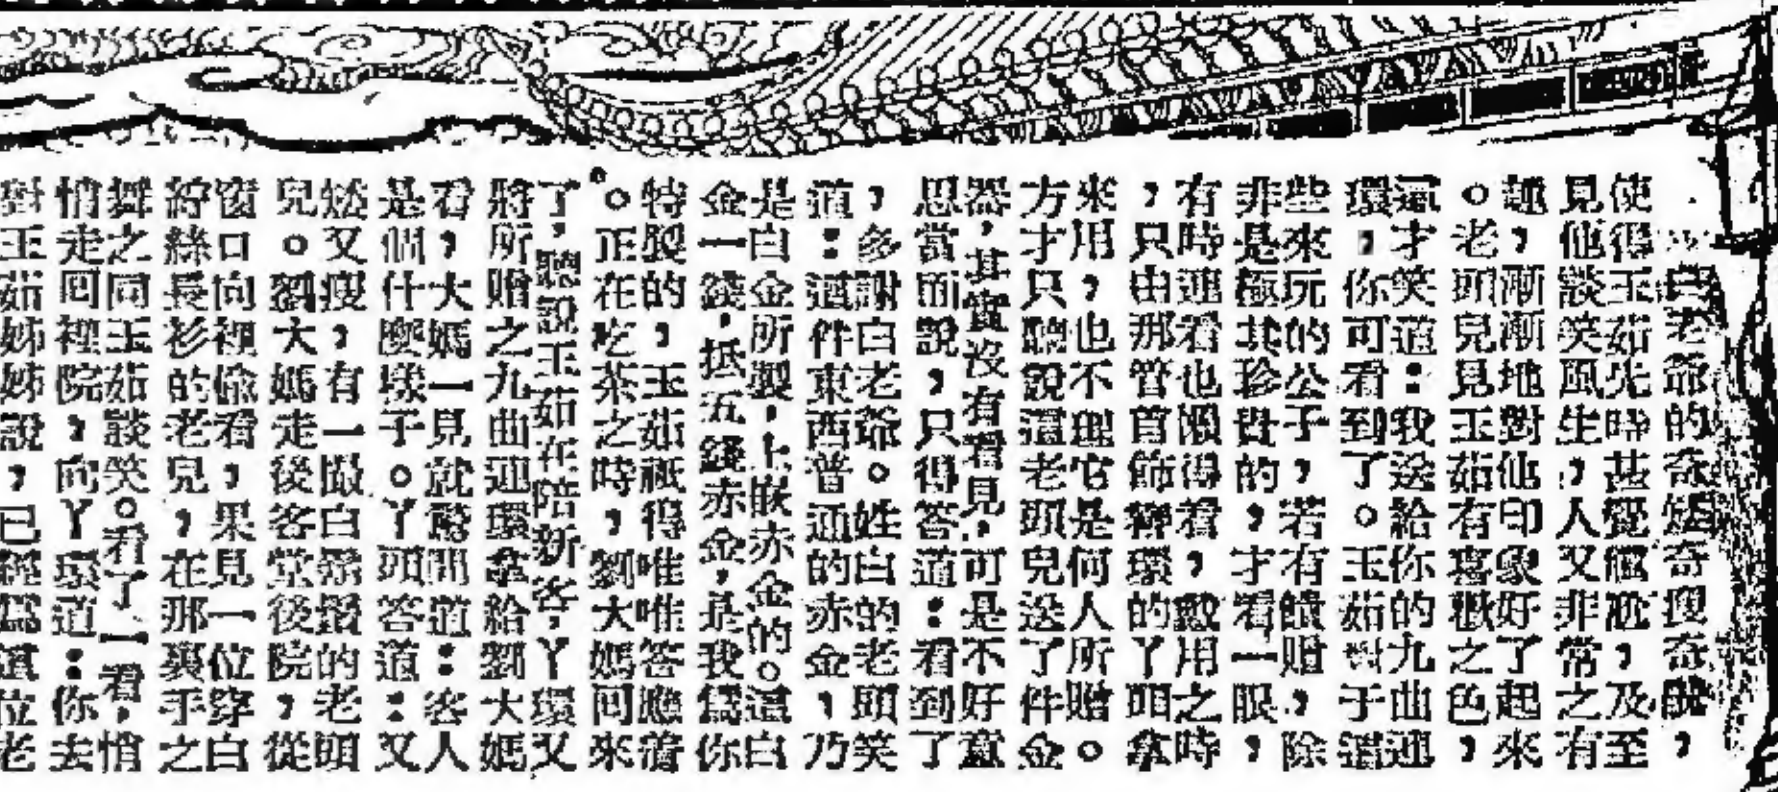 白老爺的奇矮奇瘦奇醜，
使得玉茹先時甚覺尷尬，及至
見他談笑風生，人又非常之有
趣，漸漸地對他印象好了起來
。老頭兒見玉茹有喜歡之色，
才笑道：我送給你的九曲連
環，你可看到了。玉茹對于這
些來玩的公子，若有饋贈，除
非是極其珍貴的，才看一眼，
有時連看也懶得看，戴用之時
，只由那管首飾環的丫頭拿
來用，也不理它是何人所贈。
方才只聽說這老頭兒送了件金
器，其實沒有看見，可是不好意
思當面說，只得答道：看到了
，多謝白老爺。姓白的老頭笑
道：這件東西普通的赤金，乃
是白金所製，上嵌赤金的。這白
金一錢，抵五錢赤金，是我為你
特製的，玉茹祇得唯唯答應着
。正在吃茶之時，劉大媽回來
了，聽說玉茹在陪新客，丫環又
將所贈之九曲連環拿給劉大媽
看，大媽一見就驚問道：客人
是個什麼樣子。丫頭答道：又
矮又瘦，有一撮白鬍鬚的老頭
兒。劉大媽走後客堂後院，從
窗口向裡偷看，果見一位穿白
紡絲長衫的老兒，在那裏手之
舞之同玉茹談笑。看了一看，悄
悄走回裡院，向丫環道：你去
對玉茹姊姊說，已經為這位老